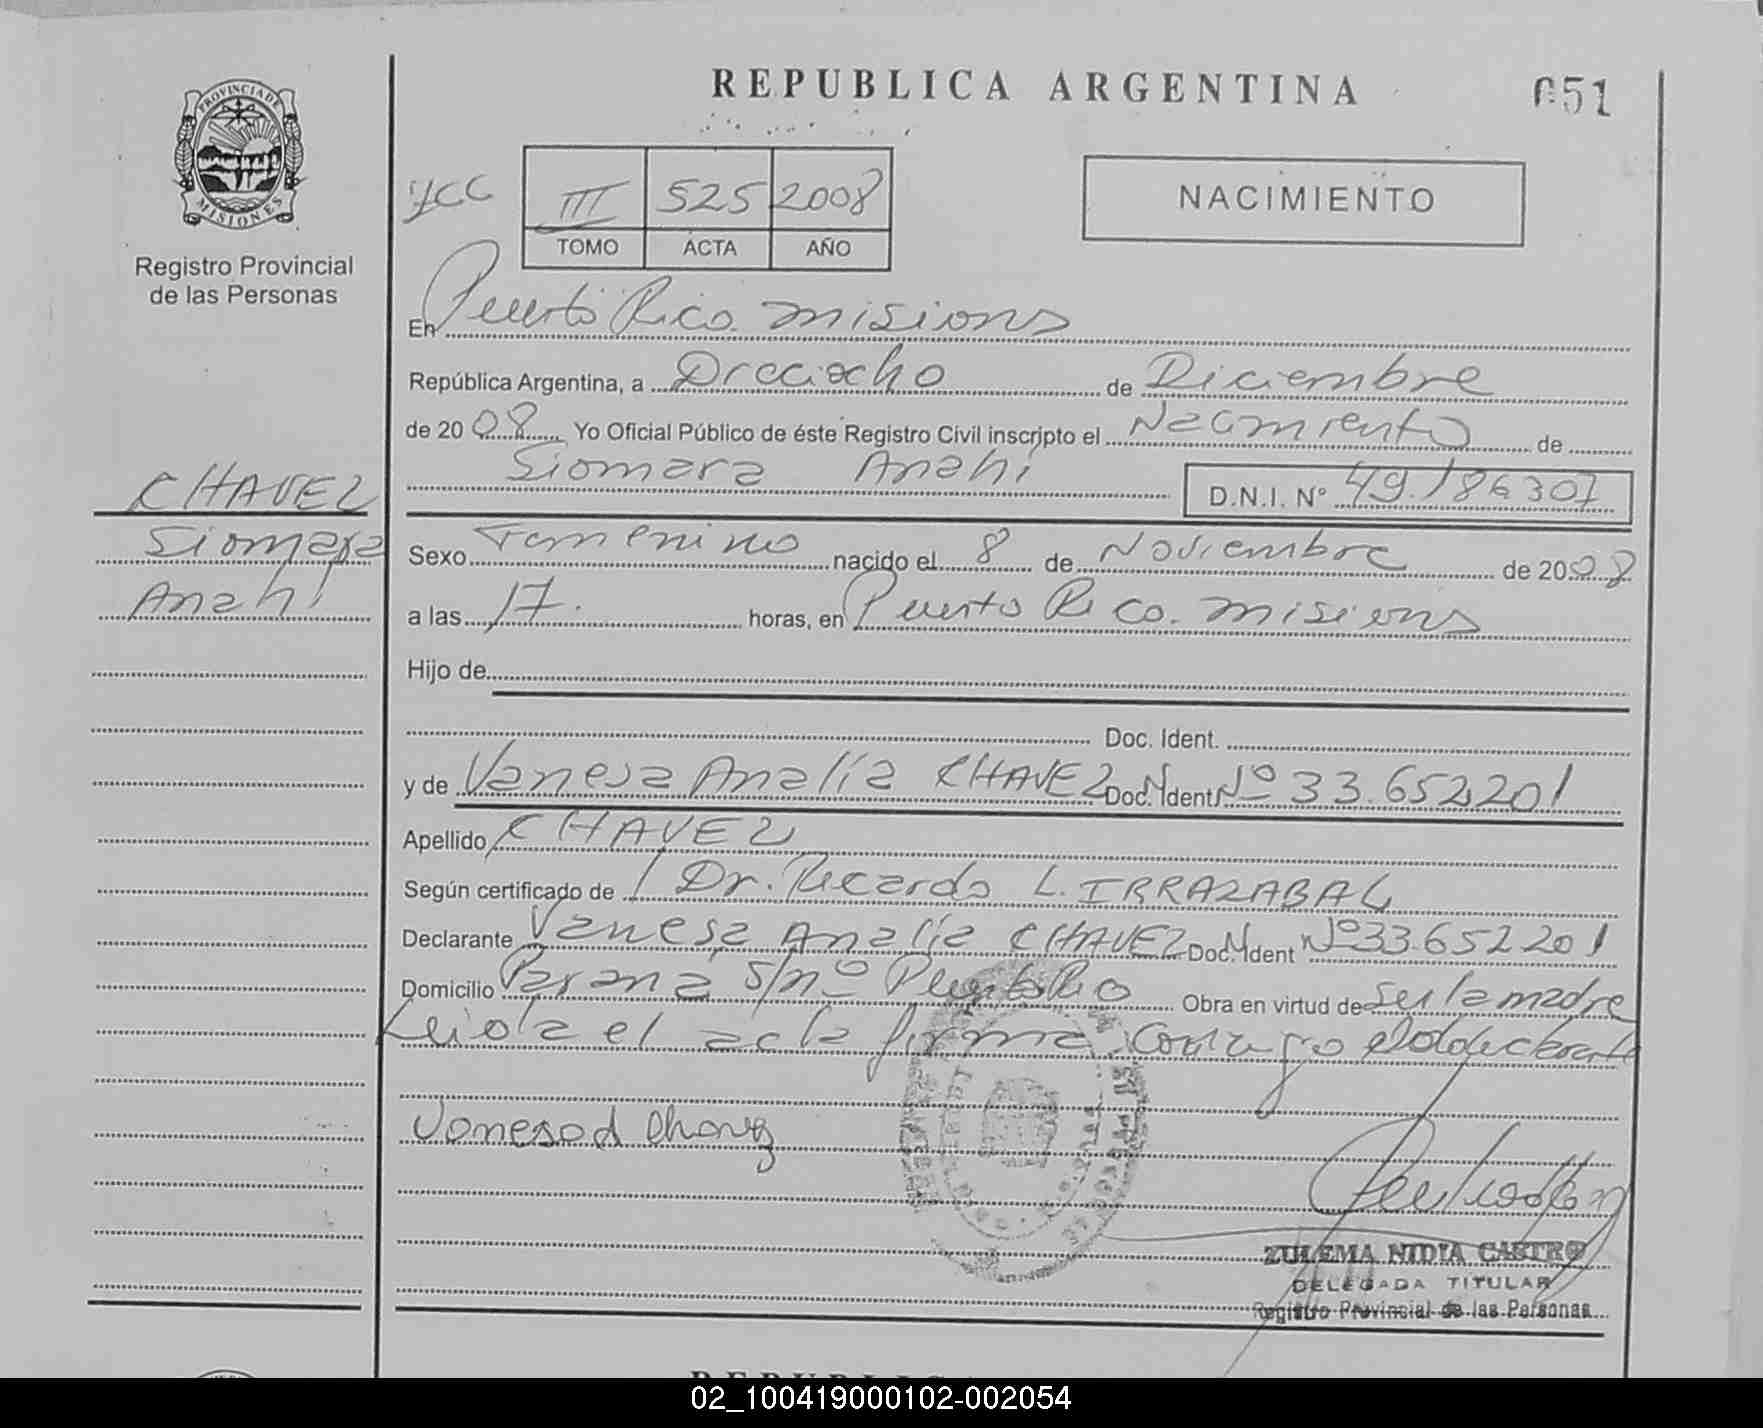 REPUBLICA ARGENTINA
051
PROVINCIA DE MISIONES
Registro Provincial
de las Personas
III 525 2008
TOMO ACTA AÑO
NACIMIENTO
En Puerto Rico. Misiones
República Argentina, a Dieciocho de Diciembre
de 2008 Yo Oficial Público de éste Registro Civil inscripto el Nacimiento de
Siomara Anahí D.N.I. Nº 49.186307
CHAVEZ
Siomara
Anahí
Sexo Femenino nacido el 8 de Noviembre de 2008
a las 17. horas, en Puerto Rico. Misiones
Hijo de
Doc. Ident.
y de Vanesa Analía CHAVEZ Doc. Ident. Nº 33.652201
Apellido CHAVEZ
Según certificado de Dr. Ricardo L. IRRAZABAL
Declarante Vanesa Analía CHAVEZ Doc. Ident Nº 33.652201
Domicilio Paraná s/nº Puerto Rico Obra en virtud de ser la madre
Leída el acta firma conmigo el declarante
ZULEMA NIDIA CASTRO
DELEGADA TITULAR
Registro Provincial de las Personas
02_100419000102-002054